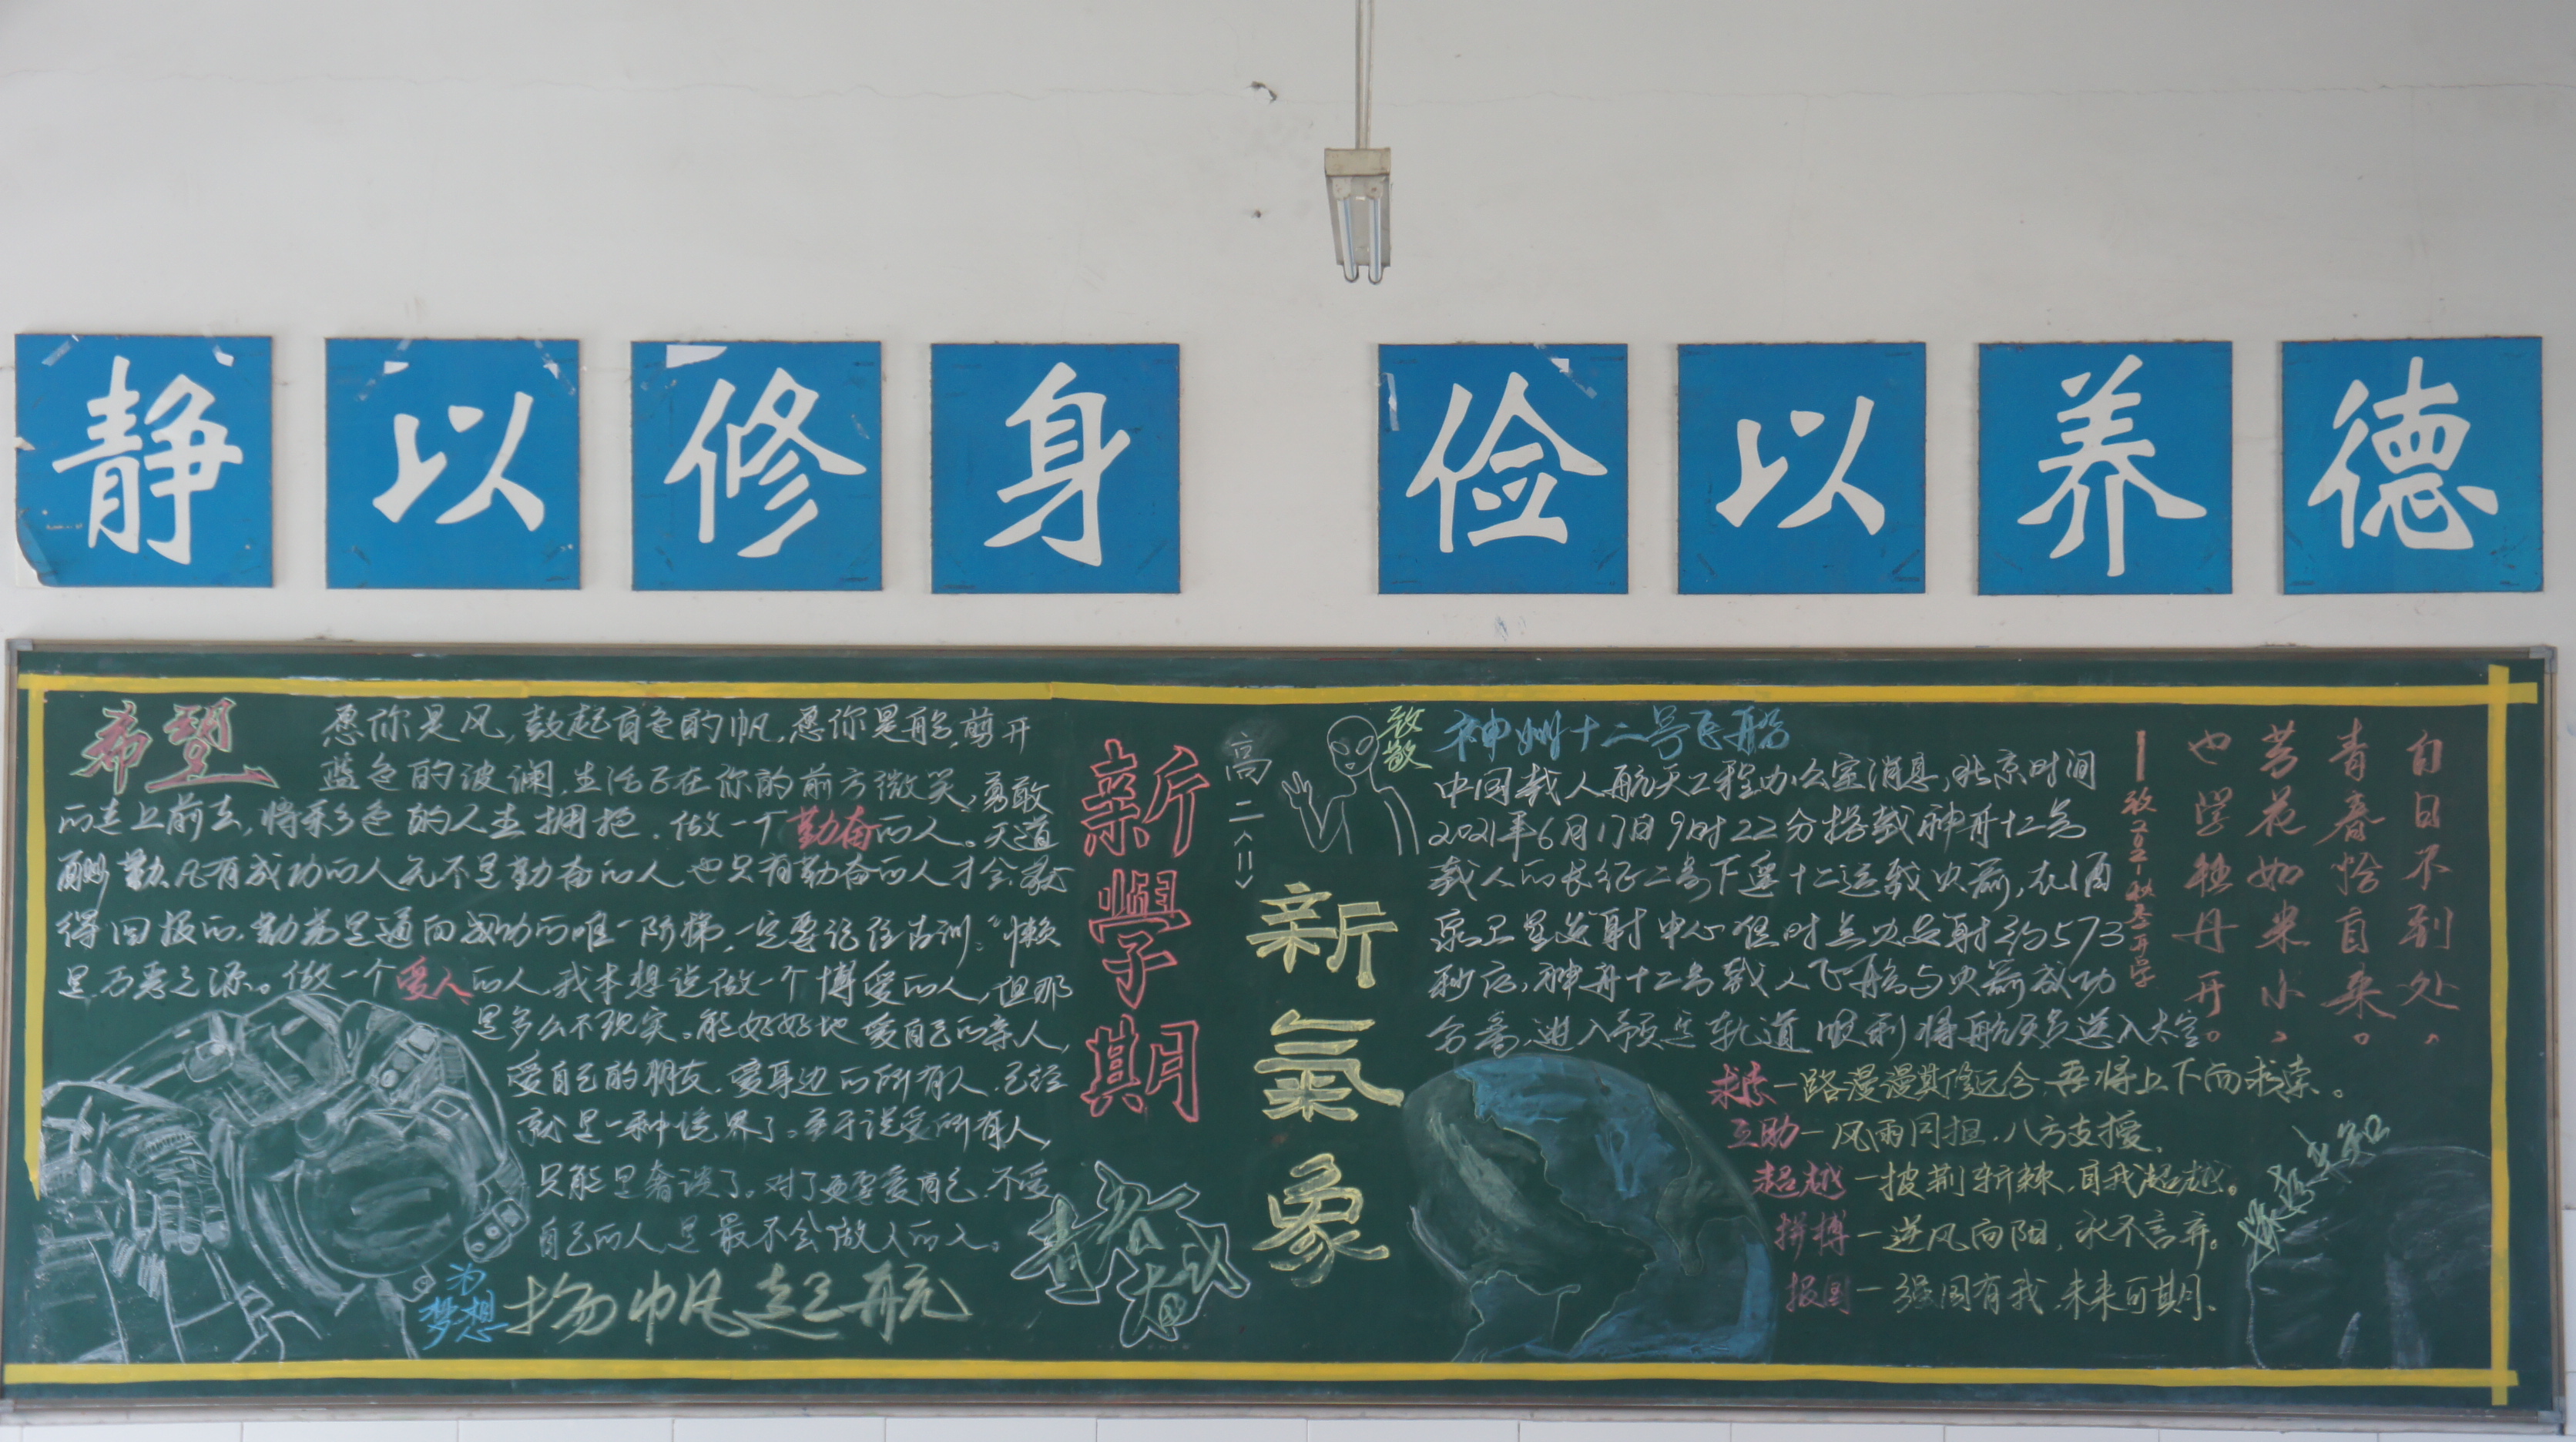 静以修身 俭以养德
希望
愿你是风,鼓起白色的帆,愿你是船,剪开
蓝色的波澜,生活正在你的前方微笑,勇敢
的走上前去,将彩色的人生拥抱。做一个勤奋的人。天道
酬勤,凡有成功的人无不是勤奋的人,也只有勤奋的人才会获
得回报的,勤劳是通向成功的唯一阶梯,一定要记住古训:“懒
是万恶之源。做一个爱人的人,我本想说做一个博爱的人,但那
是多么不现实。能好好地爱自己的亲人,
爱自己的朋友,爱身边的所有人,已经
就是一种境界了。至于说爱所有人,
只能是奢谈了。对了更要爱自己,不爱
自己的人,是最不会做人的人。
为
梦想
扬帆起航
新學期
高二<二>
新氣象
致敬
神州十二号飞船
中国载人航天工程办公室消息,北京时间
2021年6月17日9时22分搭载神舟十二号
载人的长征二号F遥十二运载火箭,在酒
泉卫星发射中心准时点火发射,约573
秒后,神舟十二号载人飞船与火箭成功
分离,进入预定轨道,顺利将航天员送入太空。
白日不到处,
青春恰自来。
苔花如米小,
也学牡丹开。
求索—路漫漫其修远兮,吾将上下而求索。
互助—风雨同担,八方支援。
超越—披荆斩棘,自我超越。
拼搏—逆风向阳,永不言弃。
报国—强国有我,未来可期。